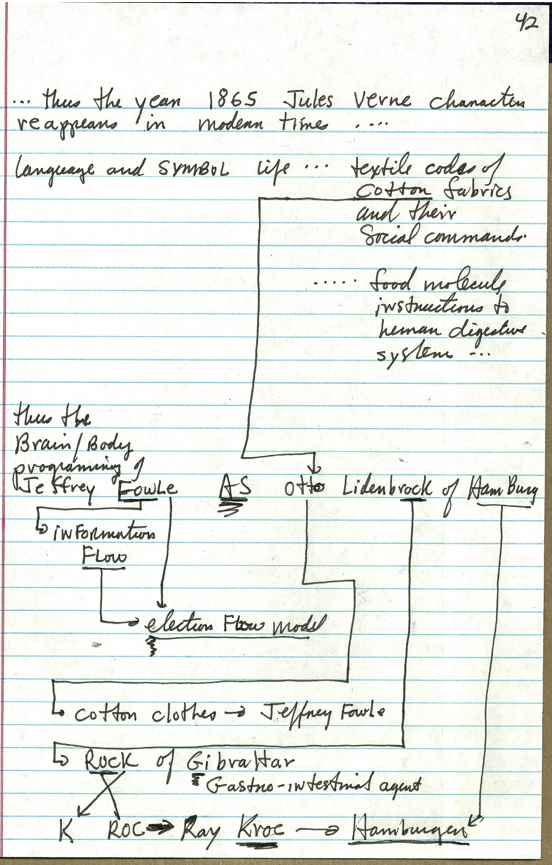 42
... thus the year 1865 Jules Verne character
reappears in modern times ....
language and SYMBOL life ... textile codes of
cotton fabrics
and their
social commands.
..... food molecule
instructions to
human digestive
system ...
thus the
Brain/Body
programing of
Jeffrey Fowle AS Otto Lidenbrock of HamBurg
information
Flow
election Flow model
cotton clothes → Jeffrey Fowle
Rock of Gibraltar
Gastro-intestinal agent
K ROC → Ray Kroc → Hamburger